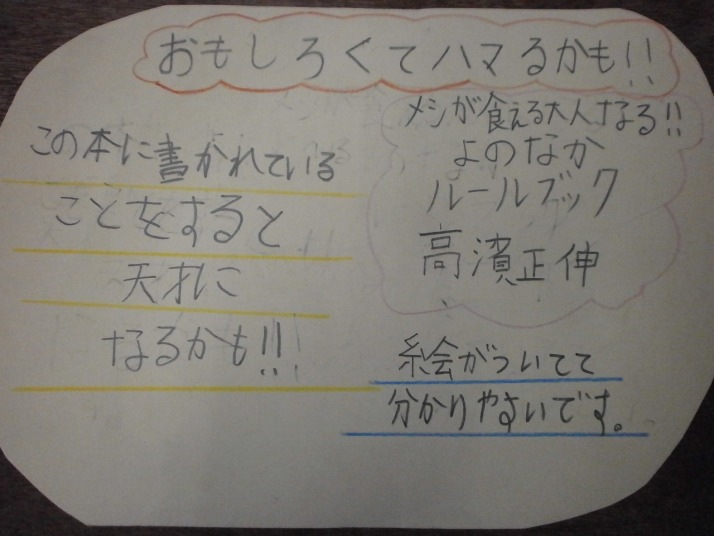 おもしろくてハマるかも!!
メシが食える大人なる!!
よのなか
ルールブック
高濱正伸
この本に書かれている
ことをすると
天才に
なるかも!!
絵がついてて
分かりやすいです。